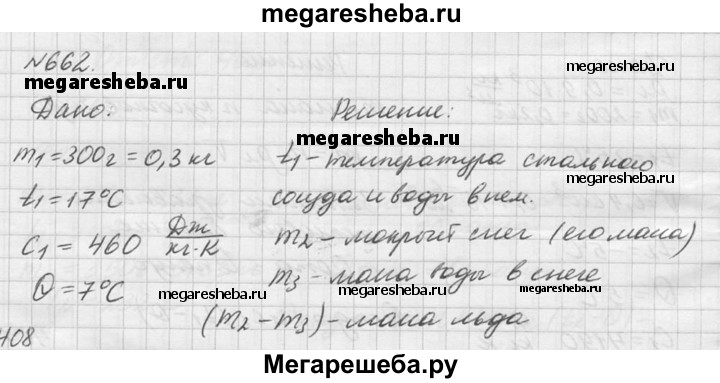 megaresheba.ru
№662.
megaresheba.ru
megaresheba.ru
Дано:
Решение:
megaresheba.ru
m1=300г=0,3 кг
t1 - температура стального
megaresheba.ru
t1=17°C
сосуда и воды в нем.
C1=460 Дж/кг·К
m2 - мокрый снег (его масса)
m3 - масса воды в снеге
Θ=7°C
megaresheba.ru
megaresheba.ru
megaresheba.ru
(m2-m3) - масса льда
408
Мегарешеба.ру